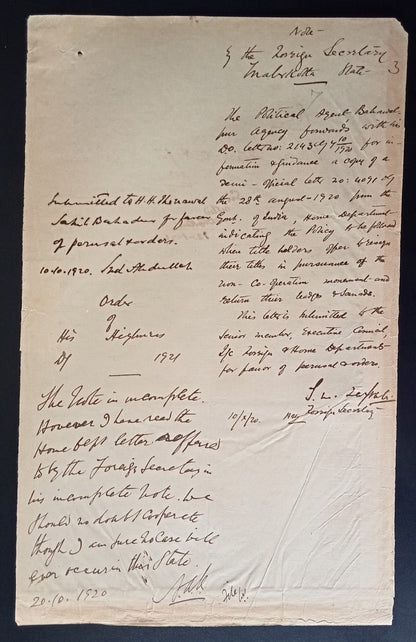 Note
by the Foreign Secretary
Malerkotla State
3
The Political Agent, Bahawal-
pur Agency forwards with his
D.O. letter no: 2143 of 4/10/1920 for in-
formation & guidance a copy of a
Demi-Official letter no: 4091 of
the 28th August-1920 from the
Govt. of India, Home Department-
indicating the Policy to be followed
when title holders offer to resign
their titles in pursuance of the
non-Co-operation movement and
return their badges & Sanads.
This letter is submitted to the
Senior member, Executive Council,
I/c Foreign & Home Departments
for favor of perusal & orders.
S. L.
Foreign Secretary
10/X/20.
Submitted to H.H. The Nawab
Sahib Bahadur for favour
of perusal & orders.
10.10.1920. Abdullah
Order
of
His Highness
D/ — 1921
The Note is incomplete.
However I have read the
Home Dept letter referred
to by the Foreign Secretary in
his incomplete Note. We
should no doubt cooperate
though I am sure no case will
ever occur in this State.
20.10.1920